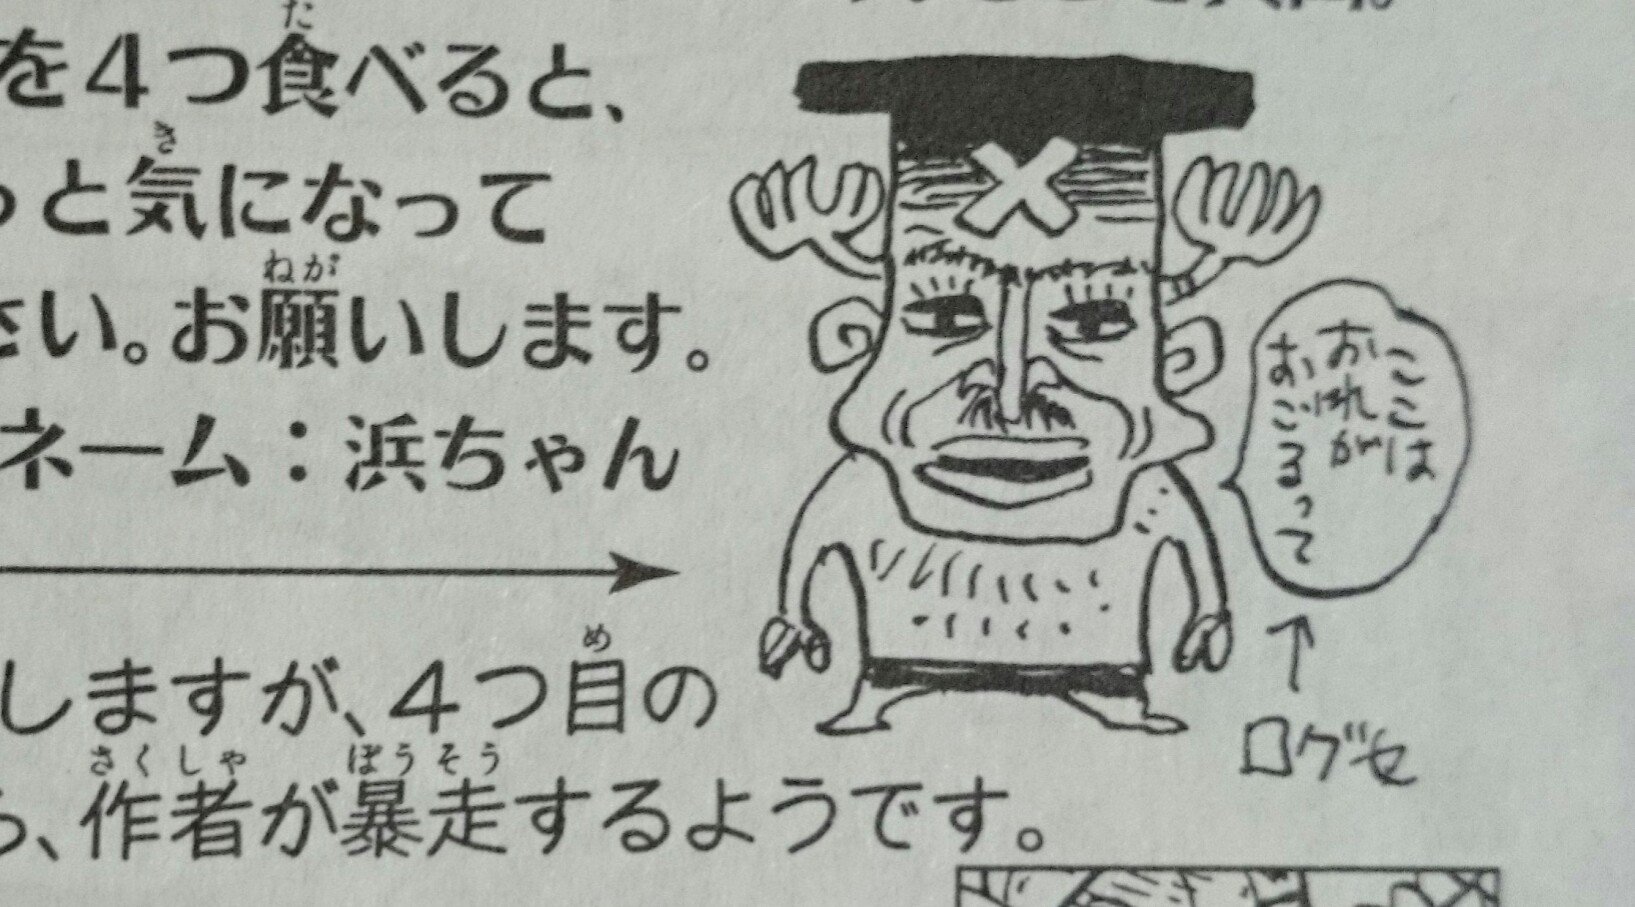 を4つ食べると、
っと気になって
さい。お願いします。
ネーム：浜ちゃん
しますが、4つ目の
ら、作者が暴走するようです。
ここは
おれが
おごるって
口グセ